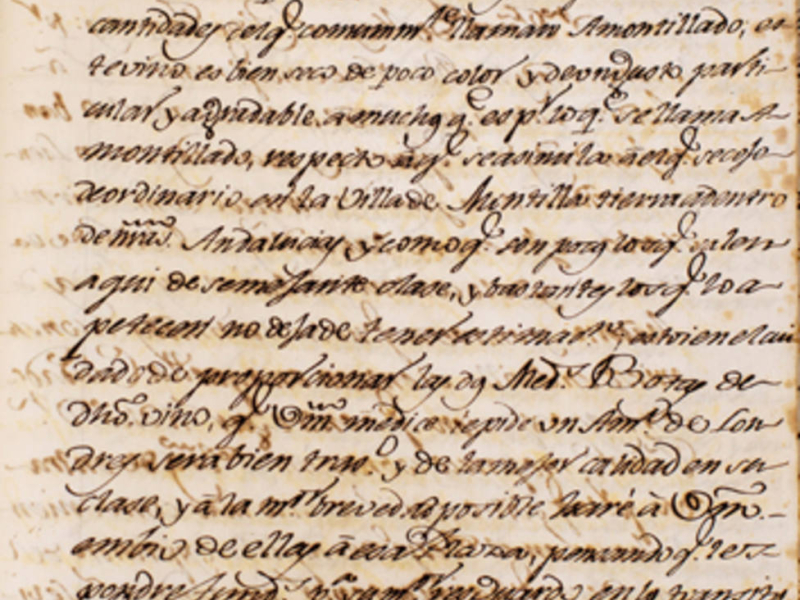 cantidades es el q.^e comunm.^te llaman Amontillado, es-
te vino es bien seco de poco color y de un gusto parti-
cular y agradable à muchos q.^e es p.^r lo q.^e se llama A-
montillado, respecto à q.^e se asimila à el q.^e se coje
de ordinario en la Villa de Montilla tierra adentro
de nras. Andalucias y como q.^e son pocos los q.^e salen
aqui de semejante clase, y bastantes los q.^e lo a-
petecen no deja de tener estimac.^on, estoi en el cui
dado de proporcionar las dos Med.^s Botas de
dho. vino, q.^e Vm. me dice le pide un Am.^o de Lon
dres sera bien trat.^o y de la mejor calidad en su
clase, y à la m.^or brevedad posible haré à Vm.
embio de ellas à esa Plaza, pensando q.^e les
en la